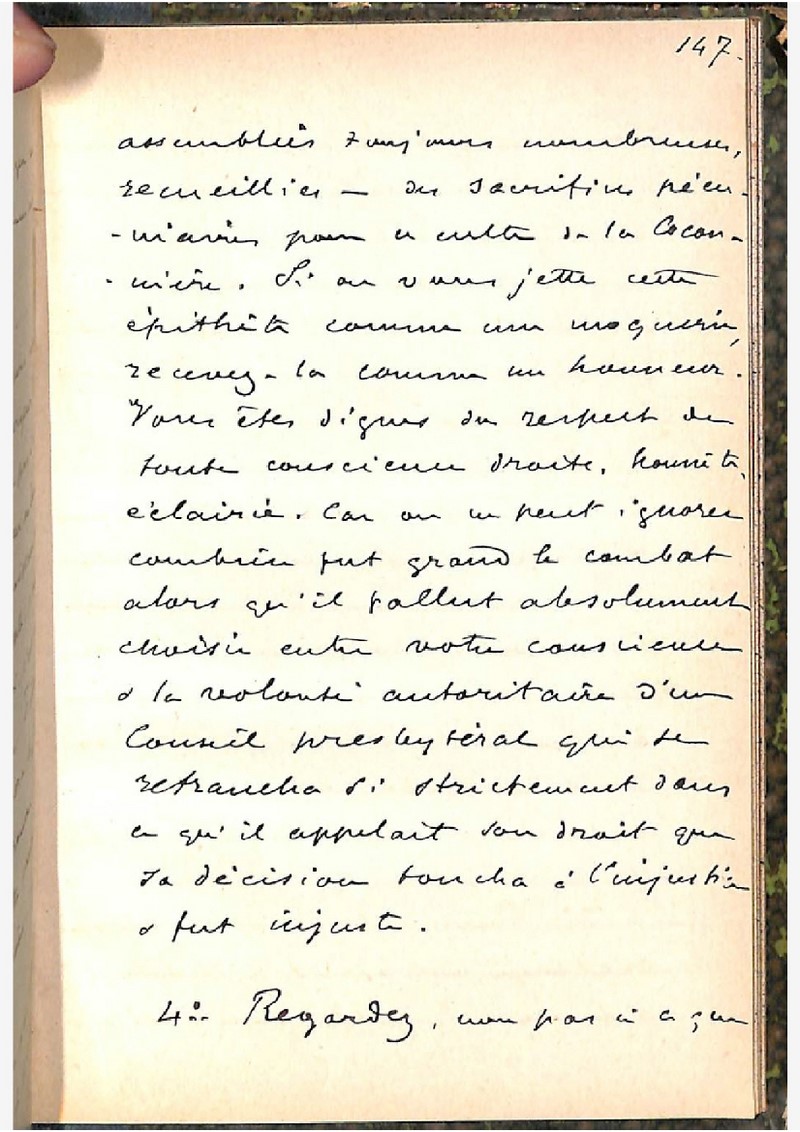 147.
assemblées toujours nombreuses,
recueillies — des sacrifices pécu-
-niaires pour le culte de la Cocon-
-nière. Si on vous jette cette
épithète comme une moquerie,
recevez-la comme un honneur.
Vous êtes dignes du respect de
toute conscience droite, honnête,
éclairée. Car on ne peut ignorer
combien fut grand le combat
alors qu'il fallut absolument
choisir entre votre conscience
& la volonté autoritaire d'un
Conseil presbytéral qui se
retrancha si strictement dans
ce qu'il appelait son droit que
sa décision toucha à l'injustice
& fut injuste.
4º- Regardez, non pas à ce que